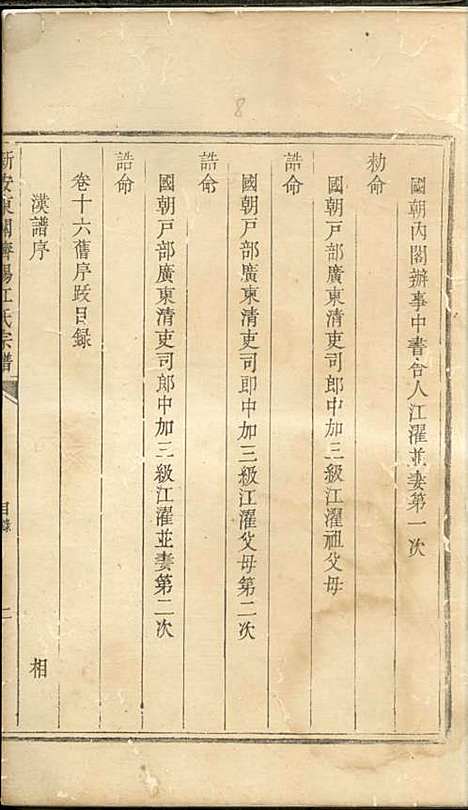 8
國朝內閣辦事中書舍人江濯並妻第一次
勅命
國朝戸部廣東清吏司郎中加三級江濯祖父母
誥命
國朝戸部廣東清吏司郎中加三級江濯父母第二次
誥命
國朝戸部廣東清吏司郎中加三級江濯並妻第二次
誥命
卷十六舊序跋目録
漢譜序 相
新安東關濟陽江氏宗譜 目録 二